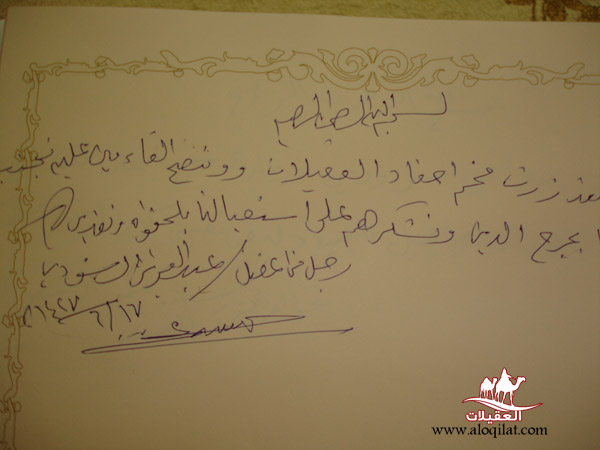 بسم الله الرحمن الرحيم
لقد زرت مخيم احفاد العقيلات وننصح القائمين عليه
الدين ونشكرهم على استقبالنا بالحفاوة وتقدير
رجل من عقيل / عبدالعزيز
١٤٢٧/٦/١٧
العقيلات
www.aloqilat.com